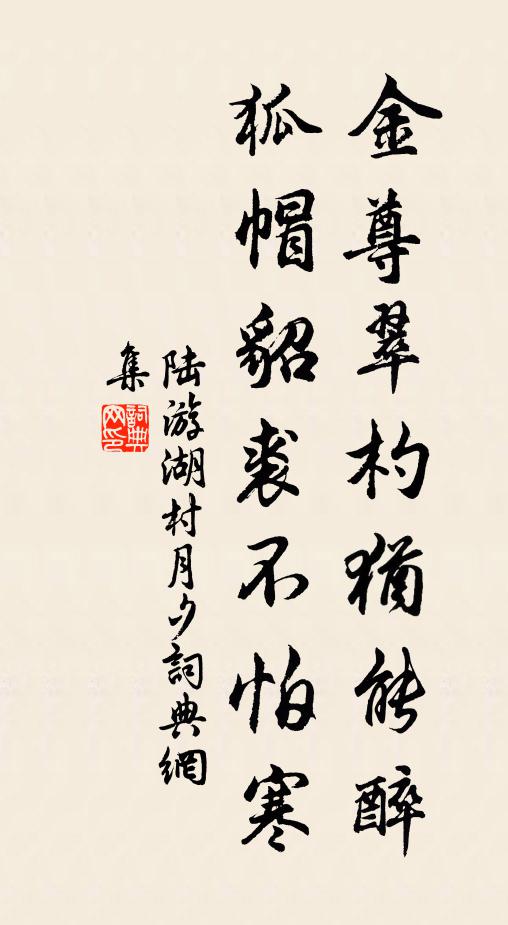 金尊翠杓猶能醉
狐帽貂裘不怕寒
陆游湖村月夕詞典網
集
詞典
网印